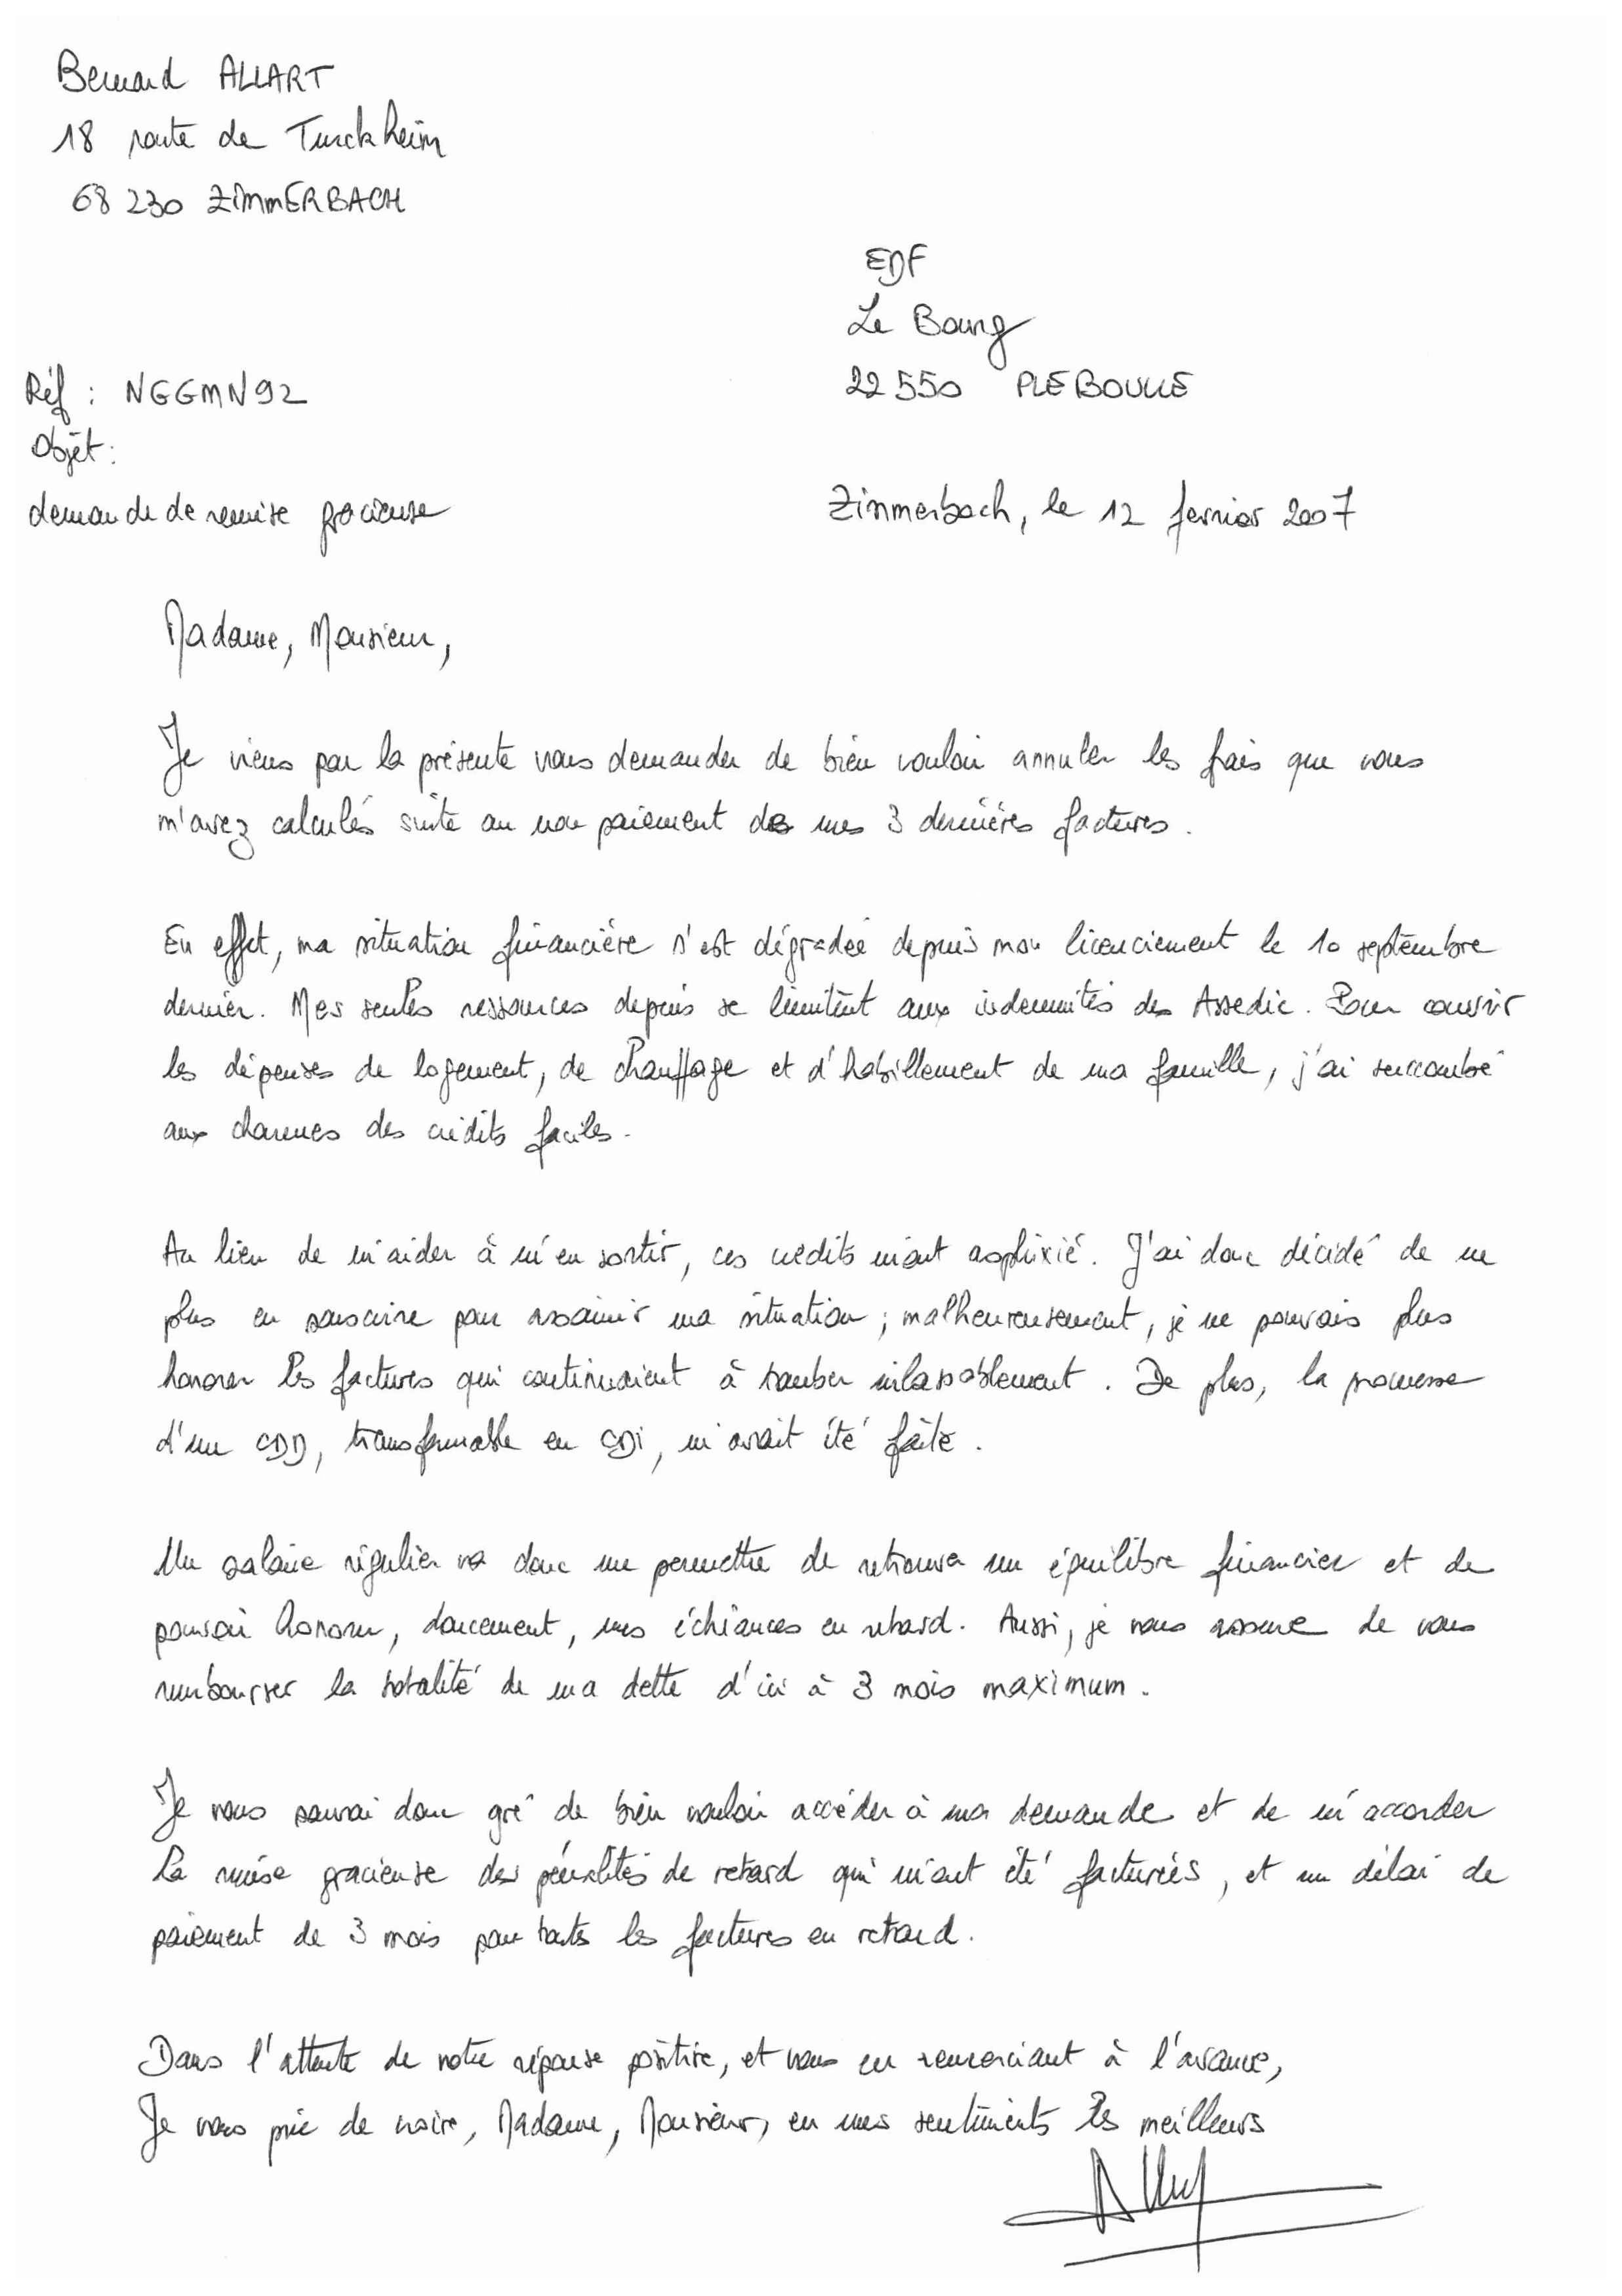 Bernard ALLART
18 route de Turckheim
68 230 ZIMMERBACH
EDF
Le Bourg
22 550 PLEBOULLE
Réf : NGGMN92
Objet :
demande de remise gracieuse
Zimmerbach, le 12 fevrier 2007
Madame, Monsieur,
Je viens par la présente vous demander de bien vouloir annuler les frais que vous
m'avez calculés suite au non paiement des mes 3 dernières factures.
En effet, ma situation financière s'est dégradée depuis mon licenciement le 10 septembre
dernier. Mes seules ressources depuis se limitent aux indemnités des Assedic. Pour couvrir
les dépenses de logement, de chauffage et d'habillement de ma famille, j'ai succombé
aux charmes des crédits faciles.
Au lieu de m'aider à m'en sortir, ces crédits m'ont asphixié. J'ai donc décidé de ne
plus en souscrire pour assainir ma situation ; malheureusement, je ne pouvais plus
honorer les factures qui continuaient à tomber inlassablement. De plus, la promesse
d'un CDD, transformable en CDI, m'avait été faite.
Un salaire régulier va donc me permettre de retrouver un équilibre financier et de
pouvoir honorer, doucement, mes échéances en retard. Aussi, je vous assure de vous
rembourser la totalité de ma dette d'ici à 3 mois maximum.
Je vous saurai donc gré de bien vouloir accéder à ma demande et de m'accorder
la remise gracieuse des pénalités de retard qui m'ont été facturées, et un délai de
paiement de 3 mois pour toutes les factures en retard.
Dans l'attente de votre réponse positive, et vous en remerciant à l'avance,
Je vous prie de croire, Madame, Monsieur, en mes sentiments les meilleurs